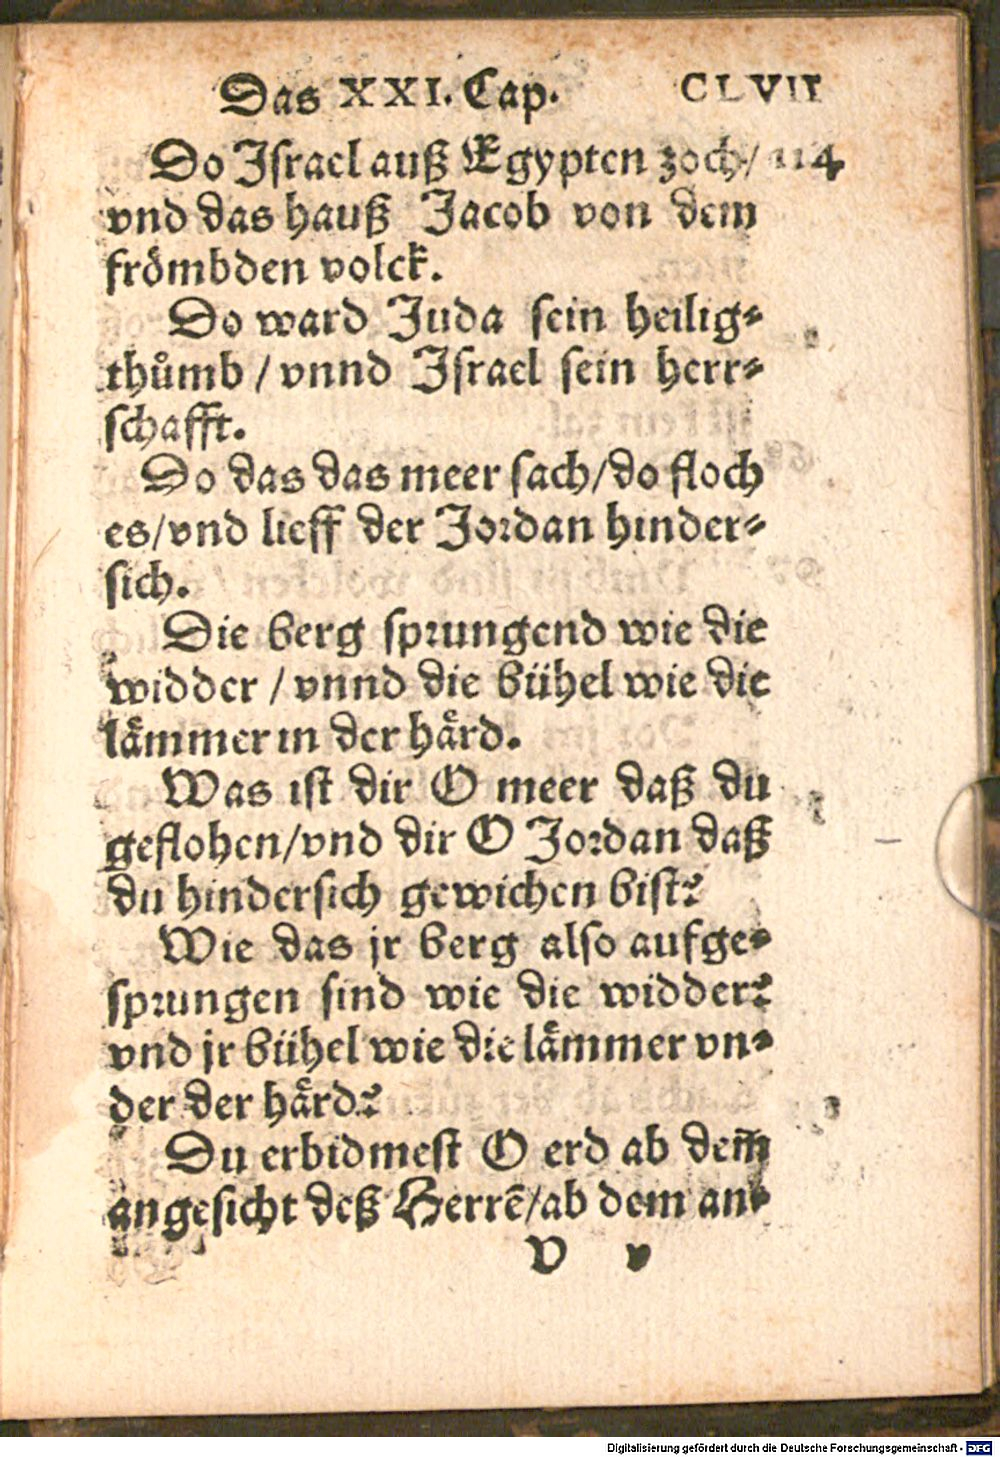 Das XXI. Cap. CLVII
Do Israel auß Egypten zoch/ 114
vnd das hauß Jacob von dem
frömbden volck.
Do ward Juda sein heilig⸗
thůmb / vnnd Israel sein herr⸗
schafft.
Do das das meer sach/do floch
es/vnd lieff der Jordan hinder⸗
sich.
Die berg sprungend wie die
widder / vnnd die bühel wie die
laͤmmer in der haͤrd.
Was ist dir O meer daß du
geflohen/vnd dir O Jordan daß
du hindersich gewichen bist?
Wie das jr berg also aufge⸗
sprungen sind wie die widder?
vnd jr bühel wie die laͤmmer vn⸗
der der haͤrd?
Du erbidmest O erd ab dem
angesicht deß Herrē/ab dem an⸗
V v
Digitalisierung gefördert durch die Deutsche Forschungsgemeinschaft - DFG